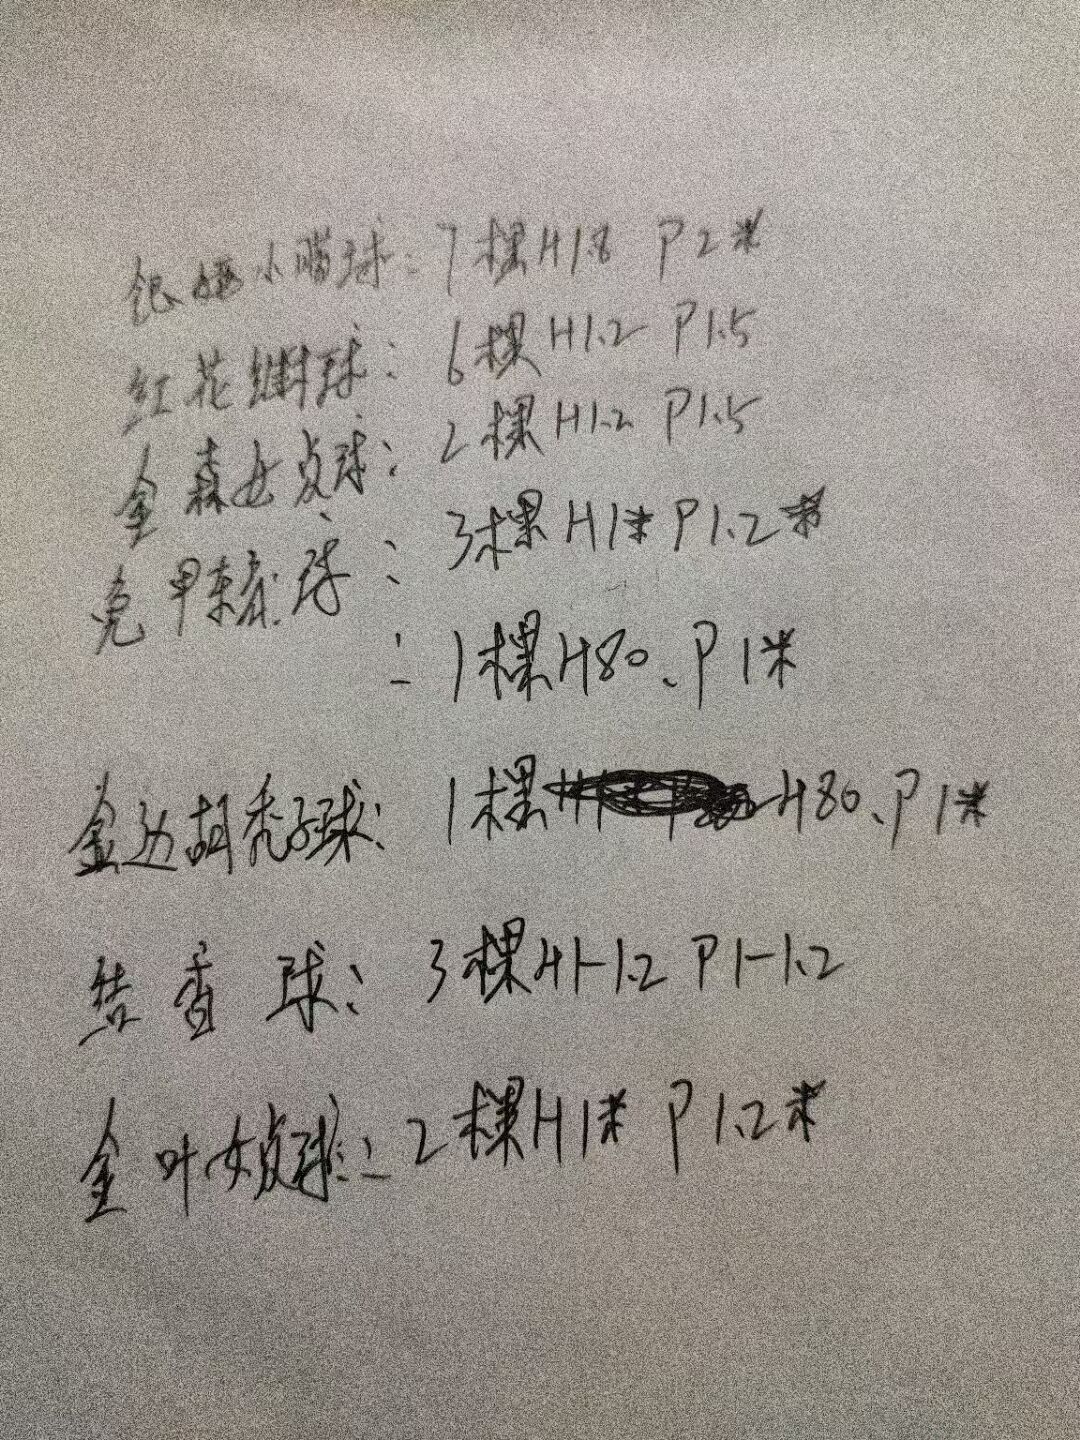 银姬小腊球：7棵H1.8 P2米
红花继球：6棵H1.2 P1.5
金森女贞球：2棵H1.2 P1.5
亮甲冬青球：3棵H1米P1.2米
：1棵H80、P1米
金边胡秃子球：1棵H80、P1米
结香球：3棵H1-1.2 P1-1.2
金叶女贞球：2棵H1米 P1.2米